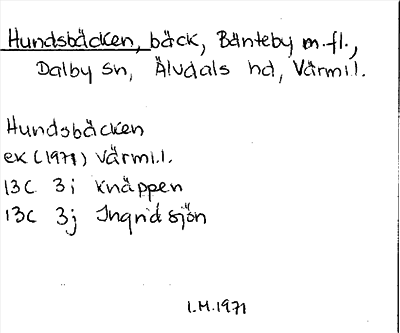 Hundsbäcken, bäck, Bänteby m.fl.,
Dalby sn, Älvdals hd, Värml.
Hundsbäcken
ek (1971) Värml.
13C 3i Knäppen
13C 3j Ingridsjön
I.M. 1971